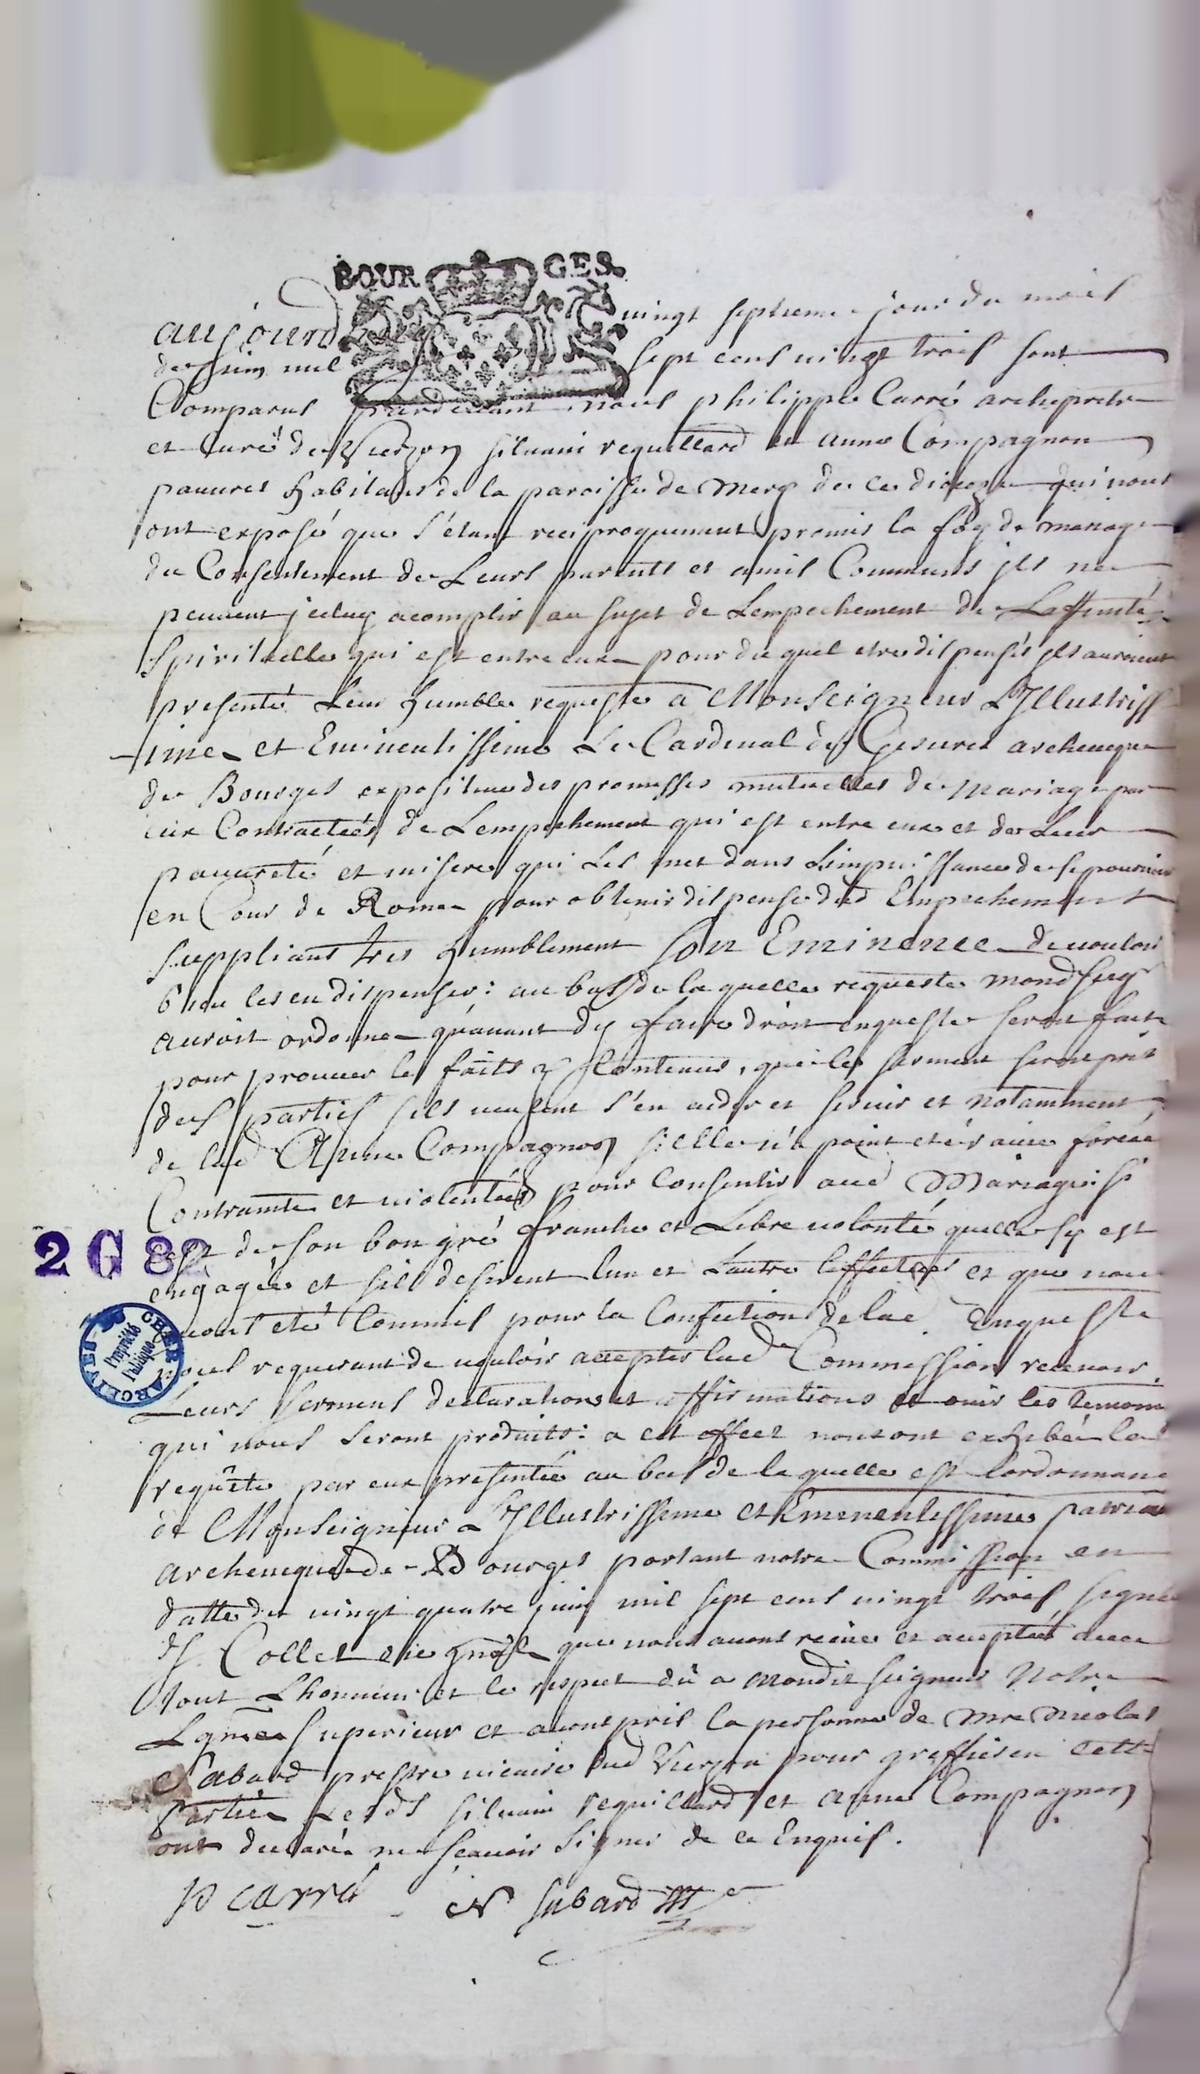 BOURGES.
aujourd vingt septieme jour du mois
de juin mil sept cens vingt trois sont
Comparus pardevant nous philippe Carré archepretre
et curé de Vierzon siluain requillard et anne Compagnon
pauures habitans de la paroisse de mery de ce diocese qui nous
ont exposé que s'étant reciproquement promis la foy de mariage
du Consentement de Leurs parents et amis Communs ils ne
peuuent jceluy acomplir au sujet de Lempechement de Laffinité
Spirituelle qui est entre eux pour du quel etre dispensés ils auroient
presenté Leur humble requeste a Monseigneur L'Illustriss
ime et Eminentissime Le Cardinal de Gesures archeueque
de Bourges expositiue des promesses mutuelles de mariage par
eux Contractées, de Lempechement qui est entre eux et de Leur
pauureté et misere qui Les met dans Limpuissance de se pouruoir
en Cour de Rome pour obtenir dispense dud Empechement
suppliant tres humblement son Eminence de vouloir
bien les en dispenser: au bas de la quelle requeste mond seigr
auroit ordonné qu'auant dy faire droit enqueste seroit faite
pour prouuer les faits y Contenus, que le serment seroit pris
des parties sils veulent s'en aider et seruir et notamment
de lad Anne Compagnon si elle n'a point eté rauie forcée
Contrainte et violentée pour Consentir aud Mariage si
c'est de son bon gré franche et Libre volonté quelle sy est
engagée et sils desirent lun et Lautre leffectuer et que nous
auons eté Commis pour la Confection de lad. Enqueste
nous requerant de vouloir accepter lad Commission receuoir
Leurs serments declarations et affirmations et ouir les temoins
qui nous seront produits: a cet effect nous ont exhibé la
requête par eux presentée au bas de la quelle est lordonnance
de Monseigneur L'Illustrissime et Eminentissime patriar
archeueque de Bourges portant notre Commission en
datte du vingt quatre juin mil sept cens vingt trois signé
Collet vic gnâl que nous auons recüe et acceptée auec
tout L'honneur et le respect dû a mondit seigneur Notre
Superieur et auons pris la personne de Mre Nicolas
Sabard prestre vicaire dud Vierzon pour greffier en cette
Partie Lesds siluain requillard et anne Compagnon
ont declaré ne sçauoir signer de ce Enquis.
P carré N Sabard
2 G 82
ARCHIVES CHER
Propriété
Publique